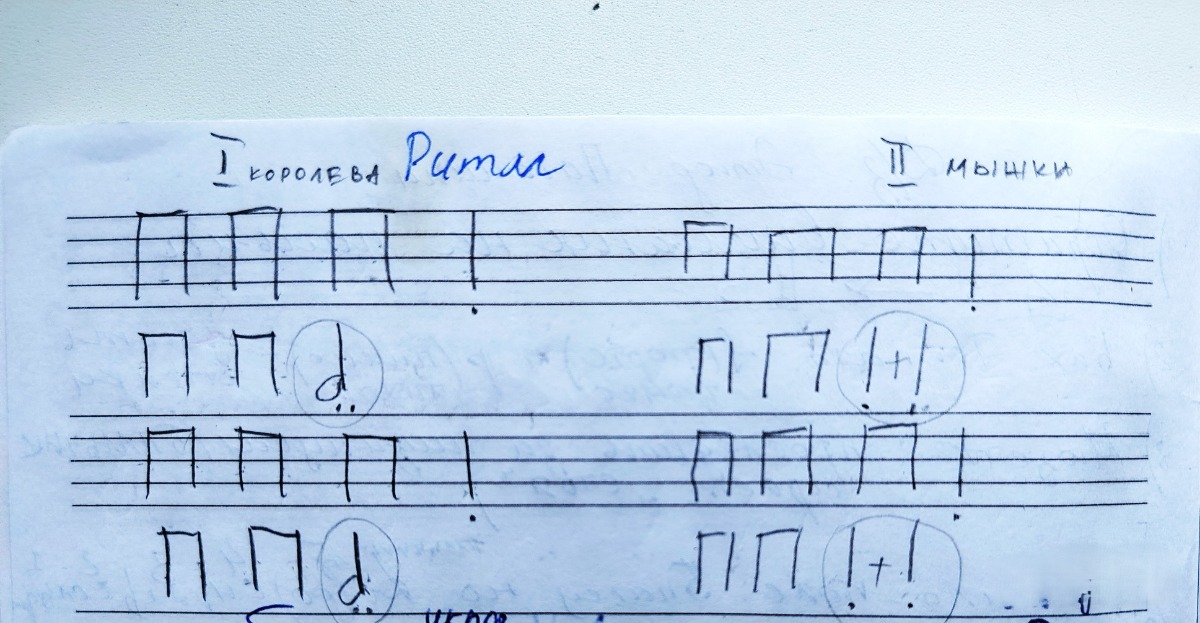 I КОРОЛЕВА Ритм II МЫШКИ